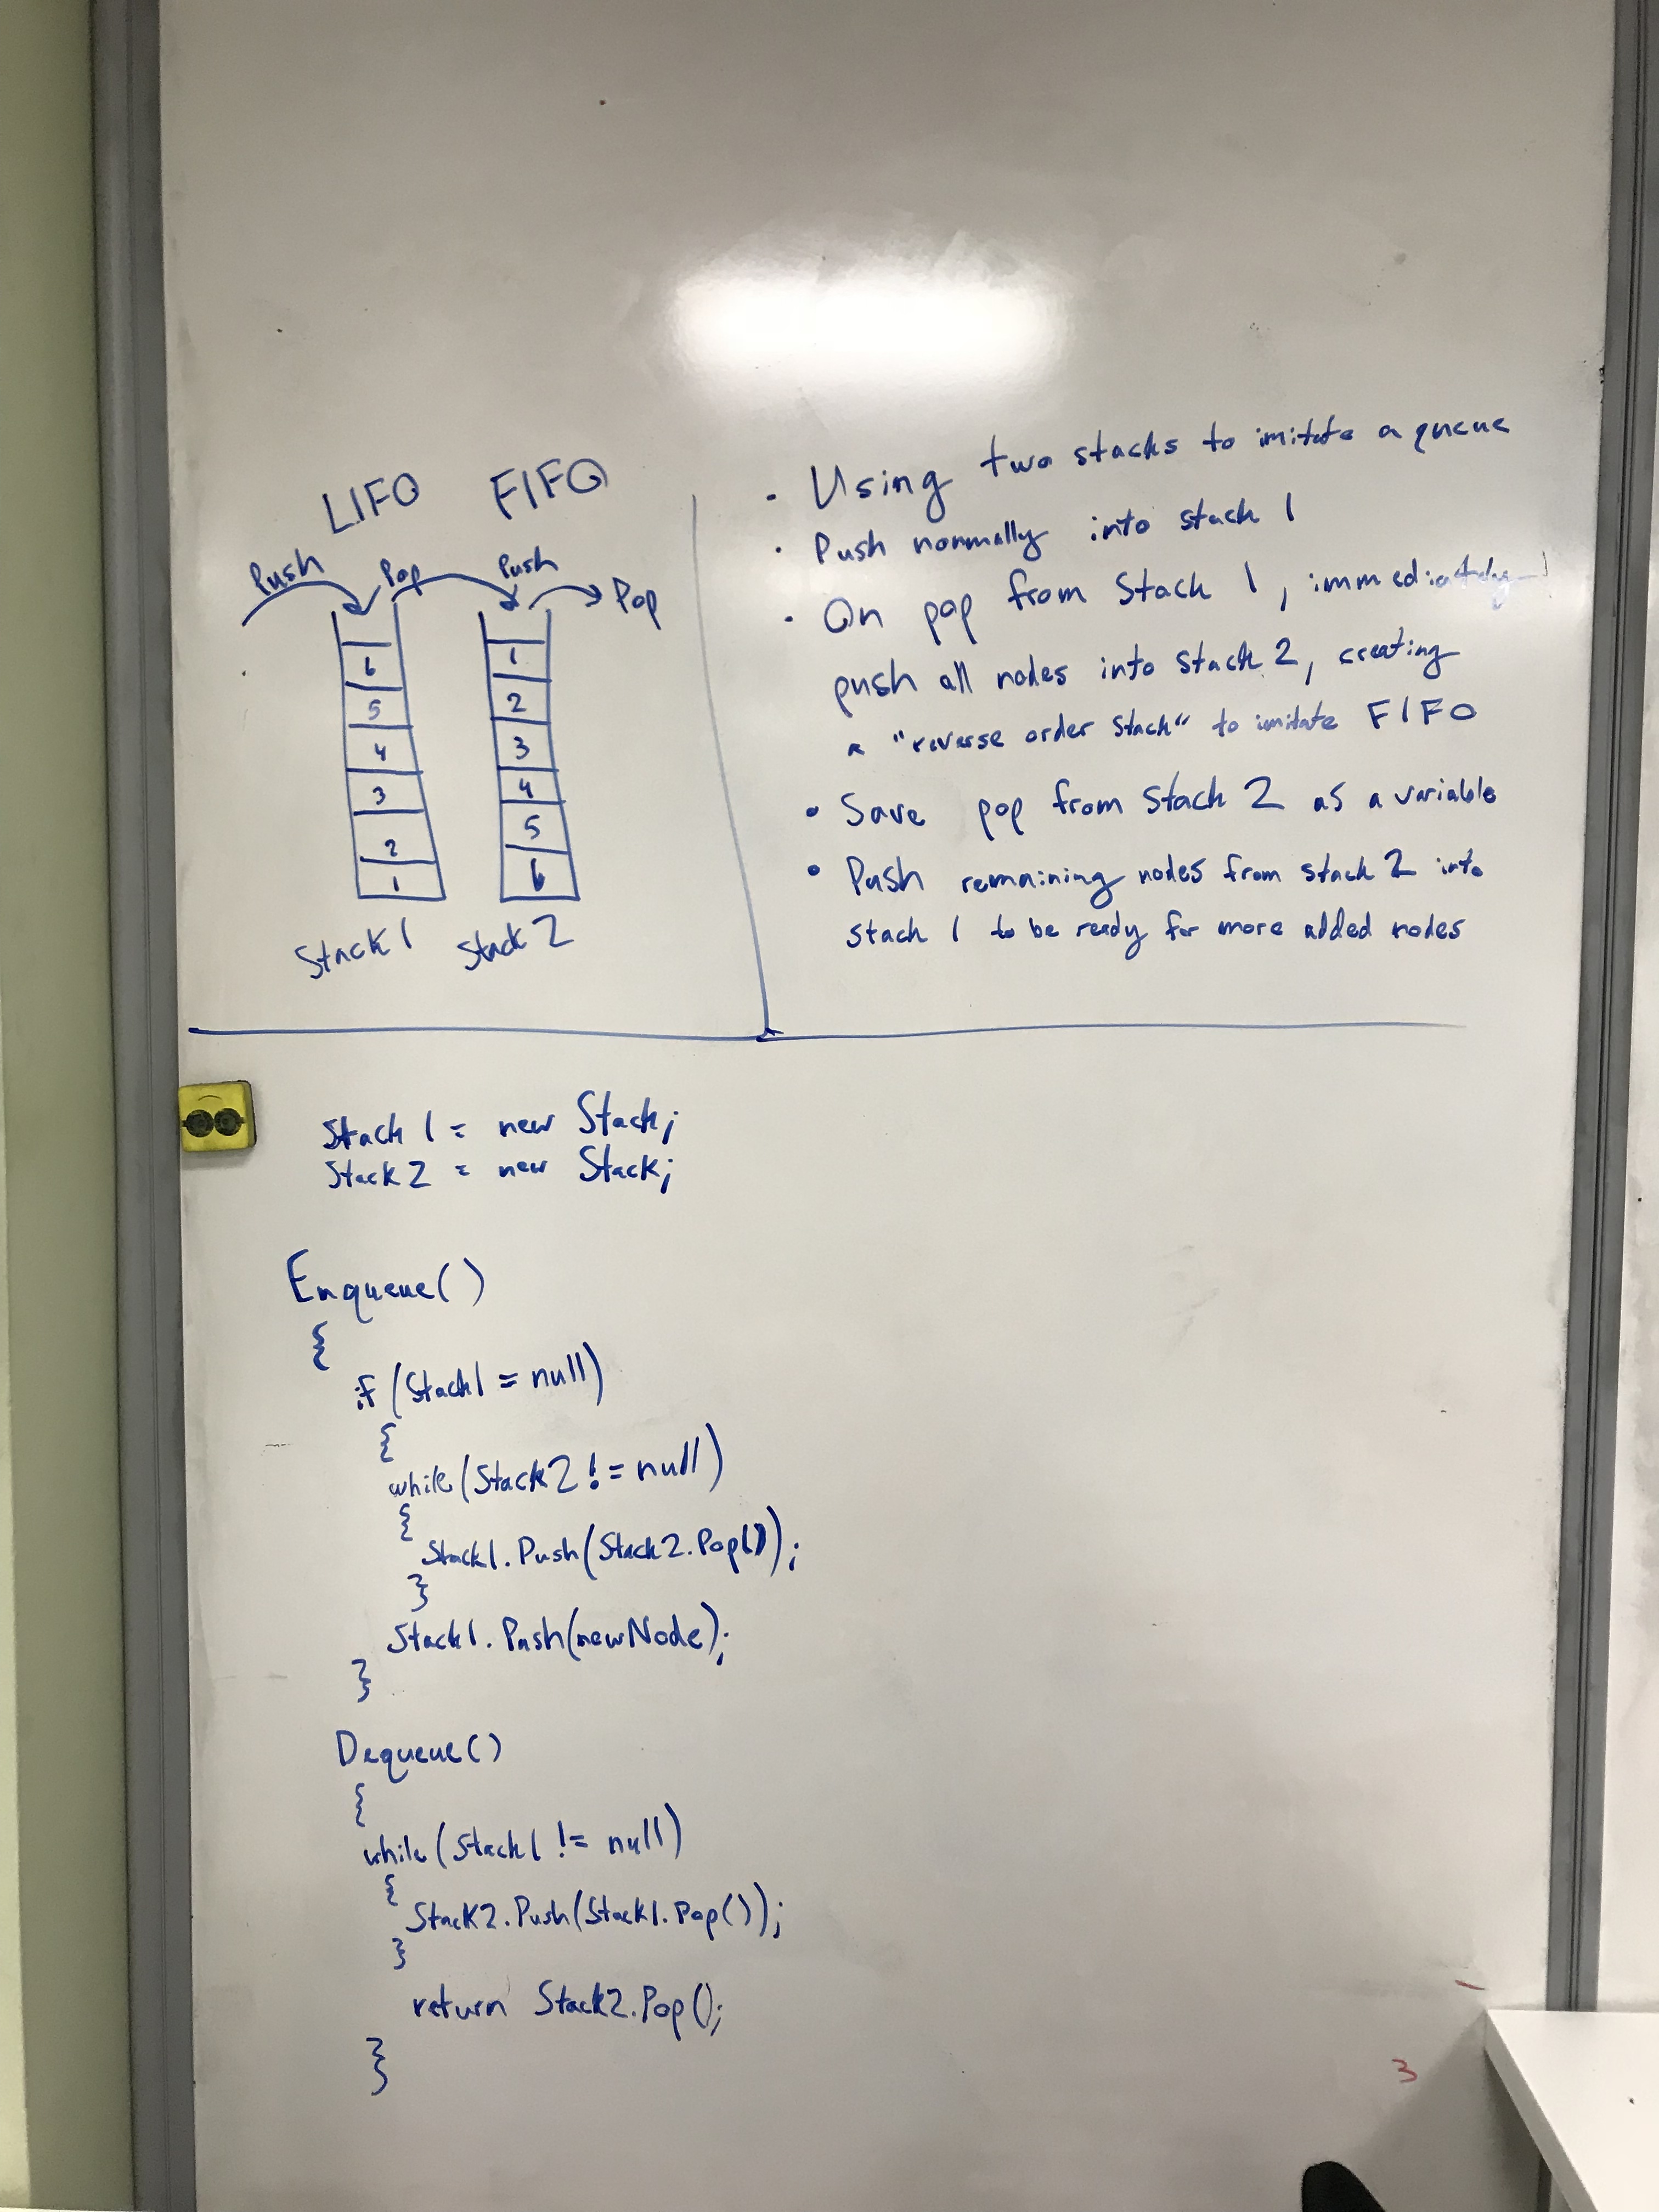 LIFO FIFO
Push Pop Push Pop
6
5
4
3
2
1
1
2
3
4
5
6
Stack 1 Stack 2
· Using two stacks to imitate a queue
· Push normally into stack 1
· On pop from Stack 1, immediately
push all nodes into stack 2, creating
a "reverse order stack" to imitate FIFO
• Save pop from stack 2 as a variable
• Push remaining nodes from stack 2 into
stack 1 to be ready for more added nodes
Stack 1 = new Stack;
Stack 2 = new Stack;
Enqueue()
{
if (Stack1 = null)
{
while (Stack2 != null)
{
Stack1.Push(Stack2.Pop());
}
Stack1.Push(newNode);
}
Dequeue()
{
while (Stack1 != null)
{
Stack2.Push(Stack1.Pop());
}
return Stack2.Pop();
}
3